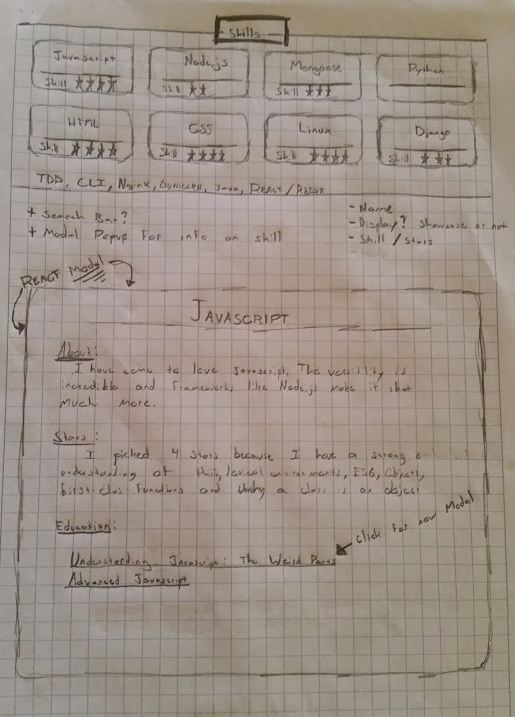 Skills
Javascript
Node.js
Mongoose
Python
Skill ★★★★
Skill ★★
Skill ★★★
HTML
CSS
Linux
Django
Skill ★★★★
Skill ★★★★
Skill ★★★★
Skill ★★★
TDD, CLI, Nginx, Gunicorn, Java, React/Redux
+ Search Bar?
+ Modal Popup for info on skill
- Name
- Display? Showcase or not
- Skill/Stars
REACT Modal
JAVASCRIPT
About:
I have come to love Javascript. The versitility is
incredible and Frameworks like Node.js make it that
much more.
Stars:
I picked 4 stars because I have a strong
understanding of this, lexical environments, ES6, Objects,
first-class functions and a class is an object
Education:
Click for new Modal
Understanding Javascript: The Weird Parts
Advanced Javascript